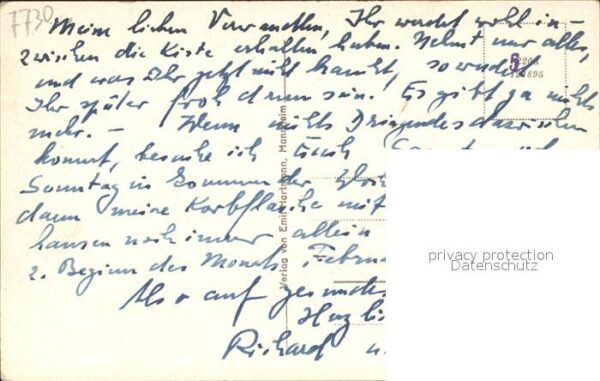 7730
Meine lieben Verwandten, Ihr werdet wohl in-
zwischen die Kiste erhalten haben. Nehmt nur alles,
und was Ihr jetzt nicht braucht, so werdet
Ihr später froh drum sein. Es gibt ja nichts
mehr. – Wenn nichts Dringendes dazwischen
kommt, besuche ich Euch
Sonntag in
dann meine Korbflasche mit
hausen noch immer allein
z. Beginn des Monats Februa
Also auf gesundes
Herzli
Richard u.
Verlag von Emil Hartmann, Mannheim
privacy protection
Datenschutz